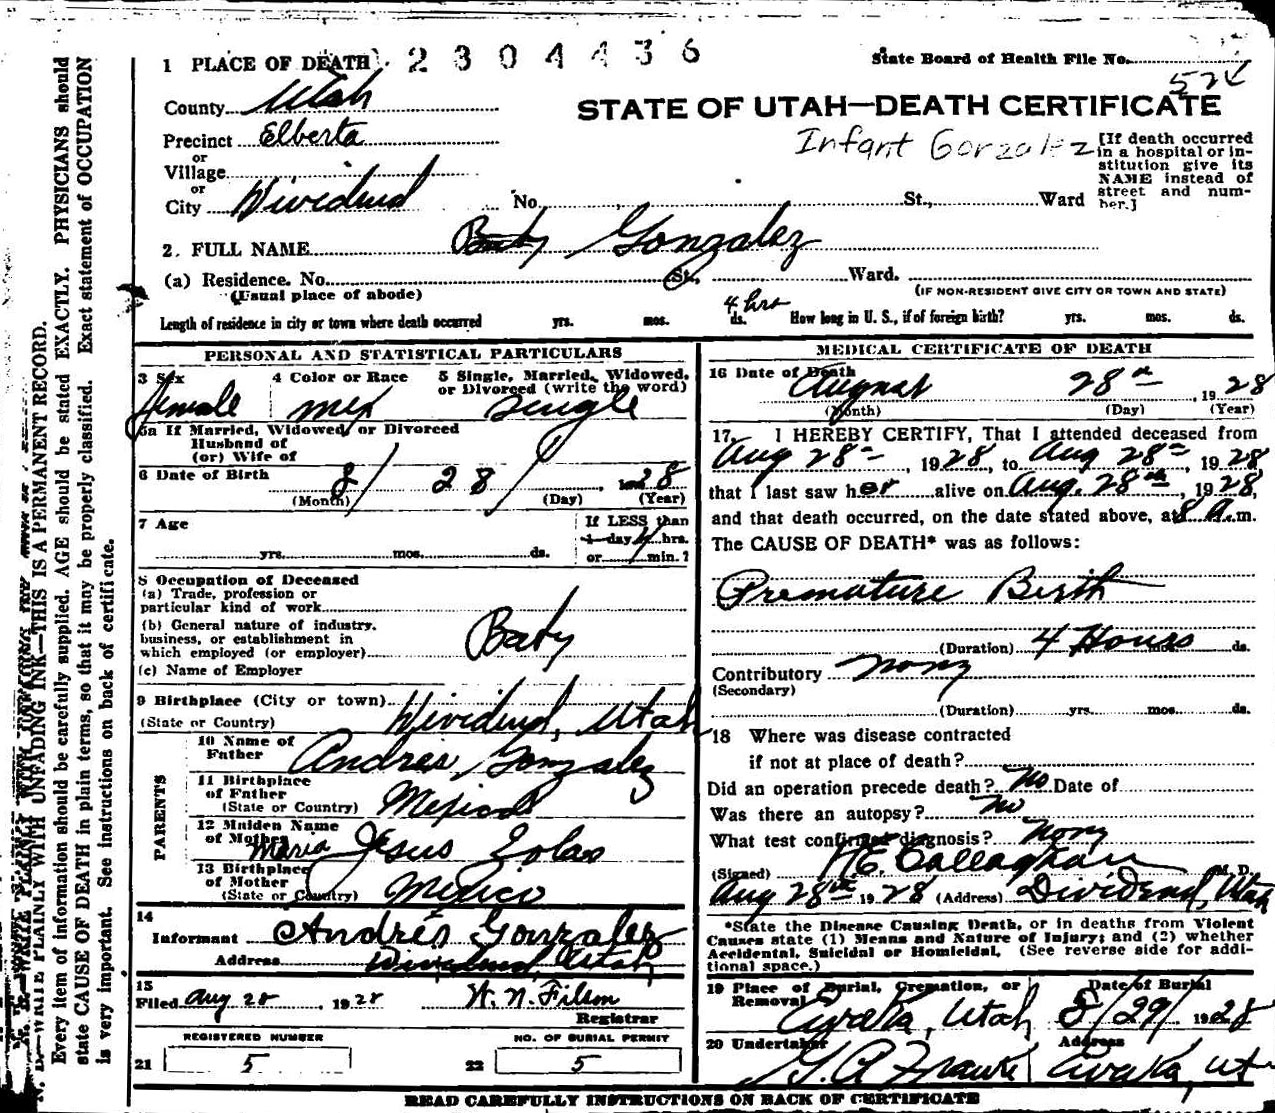 1 PLACE OF DEATH 2304436
State Board of Health File No. 524
County Utah
STATE OF UTAH—DEATH CERTIFICATE
Precinct Elberta
Infant Gonzalez
[If death occurred in a hospital or institution give its NAME instead of street and number.]
or
Village
or
City Dividend No. St., Ward
2. FULL NAME Baby Gonzalez
(a) Residence. No. St., Ward.
(Usual place of abode)
(IF NON-RESIDENT GIVE CITY OR TOWN AND STATE)
Length of residence in city or town where death occurred yrs. mos. 4 hrs ds. How long in U. S., if of foreign birth? yrs. mos. ds.
PERSONAL AND STATISTICAL PARTICULARS
3 Sex Female
4 Color or Race Mex
5 Single, Married, Widowed, or Divorced (write the word) Single
5a If Married, Widowed, or Divorced
Husband of
(or) Wife of
6 Date of Birth 8/ 28/ 1928
(Month) (Day) (Year)
7 Age
yrs. mos. ds.
If LESS than
1 day 4 hrs.
or min.?
8 Occupation of Deceased
(a) Trade, profession or
particular kind of work
(b) General nature of industry.
business, or establishment in
which employed (or employer) Baby
(c) Name of Employer
9 Birthplace (City or town)
(State or Country) Dividend, Utah
PARENTS
10 Name of
Father Andres Gonzalez
11 Birthplace
of Father
(State or Country) Mexico
12 Maiden Name
of Mother Maria Jesus
13 Birthplace
of Mother
(State or Country) Mexico
14
Informant Andrés Gonzalez
Address Dividend, Utah
15
Filed Aug 28, 1928 W. N. Filson
Registrar
REGISTERED NUMBER
21 5
NO. OF BURIAL PERMIT
22 5
MEDICAL CERTIFICATE OF DEATH
16 Date of Death
August 28th, 1928
(Month) (Day) (Year)
17. I HEREBY CERTIFY, That I attended deceased from
Aug 28th, 1928, to Aug 28th, 1928,
that I last saw her alive on Aug. 28th, 1928,
and that death occurred, on the date stated above, at 8 a.m.
The CAUSE OF DEATH* was as follows:
Premature Birth
(Duration) 4 Hours mos. ds.
Contributory
(Secondary)
(Duration) yrs. mos. ds.
18 Where was disease contracted
if not at place of death?
Did an operation precede death? No Date of
Was there an autopsy? No
What test confirmed diagnosis?
(Signed) Callaghan M. D.
Aug 28th 1928 (Address) Dividend, Utah
*State the Disease Causing Death, or in deaths from Violent
Causes state (1) Means and Nature of Injury; and (2) whether
Accidental, Suicidal or Homicidal. (See reverse side for addi-
tional space.)
19 Place of Burial, Cremation, or Removal Date of Burial
Eureka, Utah 8/29/ 1928
20 Undertaker Address
Eureka, Ut
READ CAREFULLY INSTRUCTIONS ON BACK OF CERTIFICATE
WRITE PLAINLY WITH UNFADING INK—THIS IS A PERMANENT RECORD.
Every item of information should be carefully supplied. AGE should be stated EXACTLY. PHYSICIANS should
state CAUSE OF DEATH in plain terms, so that it may be properly classified. Exact statement of OCCUPATION
is very important. See instructions on back of certificate.